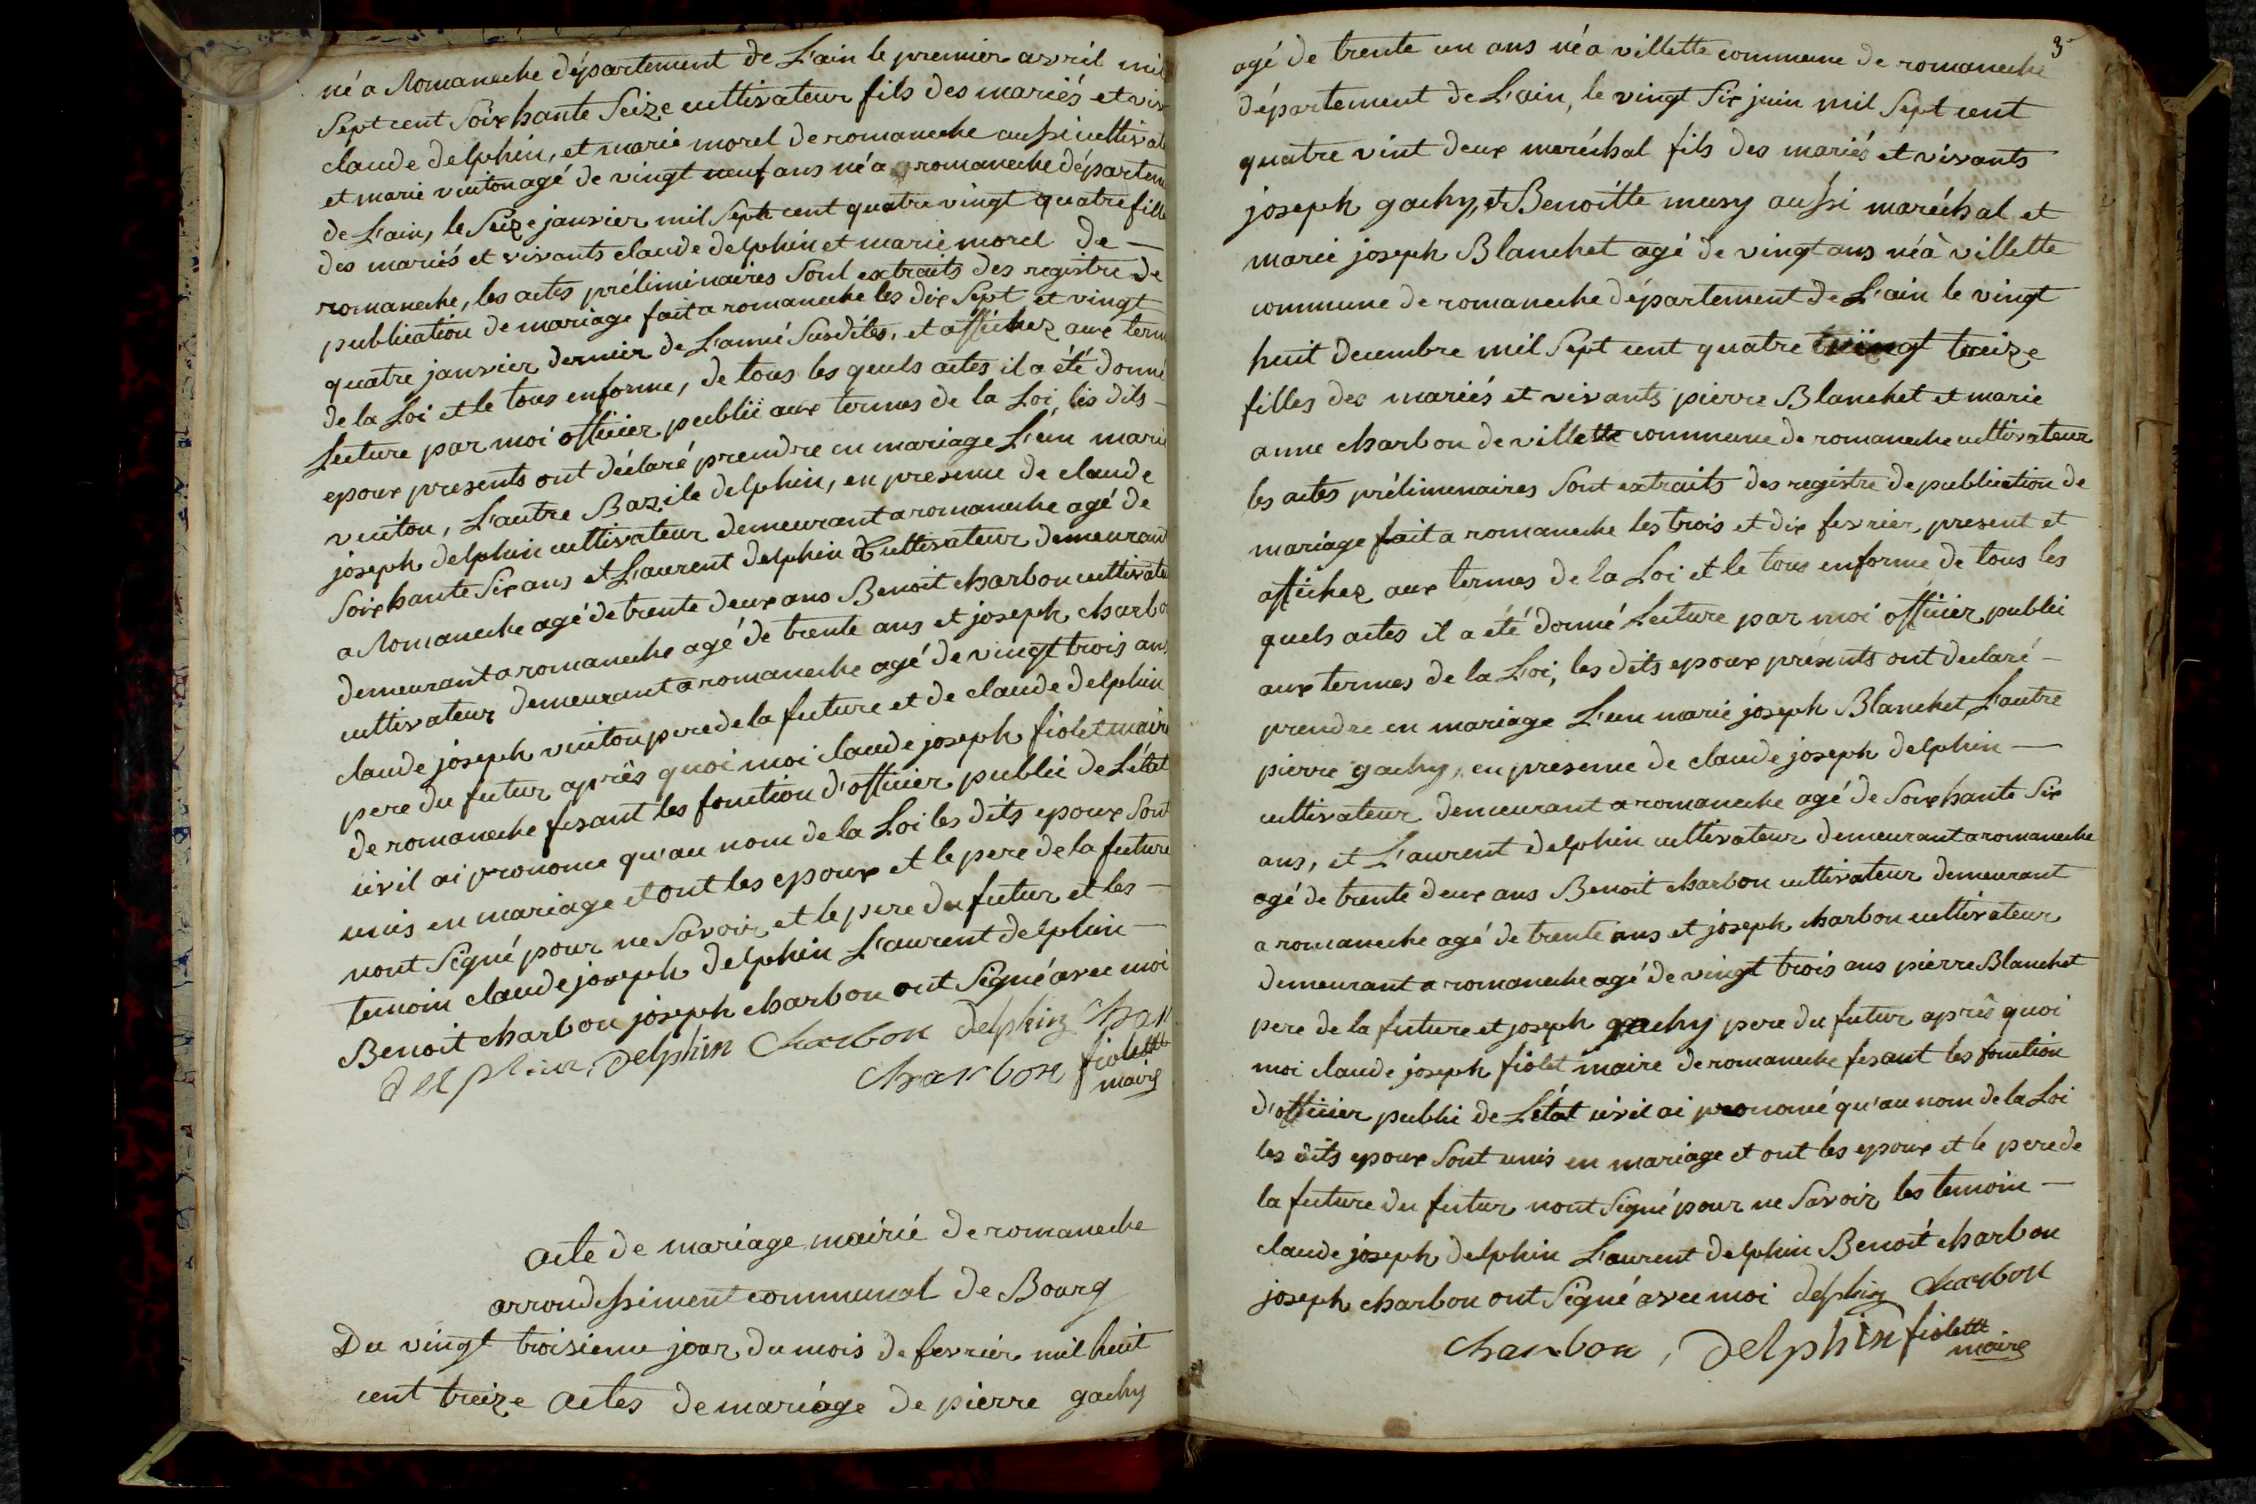 né a Romaneche département de L'ain le premier avril mil
Sept cent Soixhante Seize cultivateur fils des mariés et viv
claude delphin, et marie morel de romaneche aussi cultivat
et marie vuiton agé de vingt neuf ans né a romaneche départem
de L'ain, le Seize janvier mil Sept cent quatre vingt quatre fille
des mariés et vivants claude delphin et marie morel de —
romaneche, les actes préliminaires Sont extraits des registre de
publication de mariage fait a romaneche les dix Sept et vingt
quatre janvier dernier de L'anné Susdites, et affichez aux term
de la Loi et le tous enforme, de tous les quels actes il a été donné
Lecture par moi officier publii aux termes de la Loi, les dits —
epoux presents ont déclaré prendre en mariage L'un marie
vuiton, L'autre Bazile delphin, en presence de claude
joseph delphin cultivateur demeurant a romaneche agé de
Soixhante Six ans et Laurent delphin Cultivateur demeurant
a Romaneche agé de trente deux ans Benoit charbon cultivate
demeurant a romaneche agé de trente ans et joseph charbo
cultivateur demeurant a romaneche agé de vingt trois ans
claude joseph vuiton pere de la future et de claude delphin
pere du futur après quoi moi claude joseph fiolet maire
de romaneche fesant les fonction d'officier public de L'état
civil ai prononce qu'au nom de la Loi les dits epoux Sont
unis en mariage et ont les epoux et le pere de la future
nont Signé pour ne Savoir et le pere du futur et les —
temoin claude joseph delphin Laurent delphin —
Benoit charbon joseph charbon ont Signé avec moi
delphin, Delphin Charbon delphin
charbon fiolettt
maire
acte de mariage mairié de romaneche
arrondissiment communal de Bourg
Du vingt troisieme jour du mois de fevrier mil huit
cent treize actes de mariage de pierre gachy
3
agé de trente un ans né a villette commune de romaneche
département de L'ain, le vingt Six juin mil Sept cent
quatre vint deux maréchal fils des mariés et vivants
joseph gachy, et Benoitte musy aussi maréchal et
marie joseph Blanchet agé de vingt ans né à villette
commune de romaneche département de L'ain le vingt
huit decembre mil Sept cent quatre vingt treize
filles des mariés et vivants pierre Blanchet et marie
anne charbon de villette commune de romaneche cultivateur
les actes prélimenaires Sont extraits des registre de publication de
mariage fait a romaneche les trois et dix fevrier present et
affichez aux termes de la Loi et le tous enforme de tous les
quels actes il a été donné Lecture par moi officier public
aux termes de la Loi, les dits epoux présents ont declaré —
prendre en mariage L'un marie joseph Blanchet L'autre
pierre gachy, en presence de claude joseph delphin —
cultivateur demeurant a romaneche agé de Soixhante Six
ans, et Laurent delphin cultivateur demeurant a romaneche
agé de trente deux ans Benoit charbon cultivateur demeurant
a romaneche agé de trente ans et joseph charbon cultivateur
demeurant a romaneche agé de vingt trois ans pierre Blanchet
pere de la future et joseph gachy pere du futur après quoi
moi claude joseph fiolet maire de romaneche fesant les fonction
d'officier public de L'état civil ai prononcé qu'au nom de la Loi
les dits epoux Sont unis en mariage et ont les epoux et le pere de
la future du futur nont Signé pour ne Savoir les temoin —
claude joseph delphin Laurent delphin Benoit charbon
joseph charbon ont Signé avec moi delphin charbon
charbon, Delphin fiolettt
maire